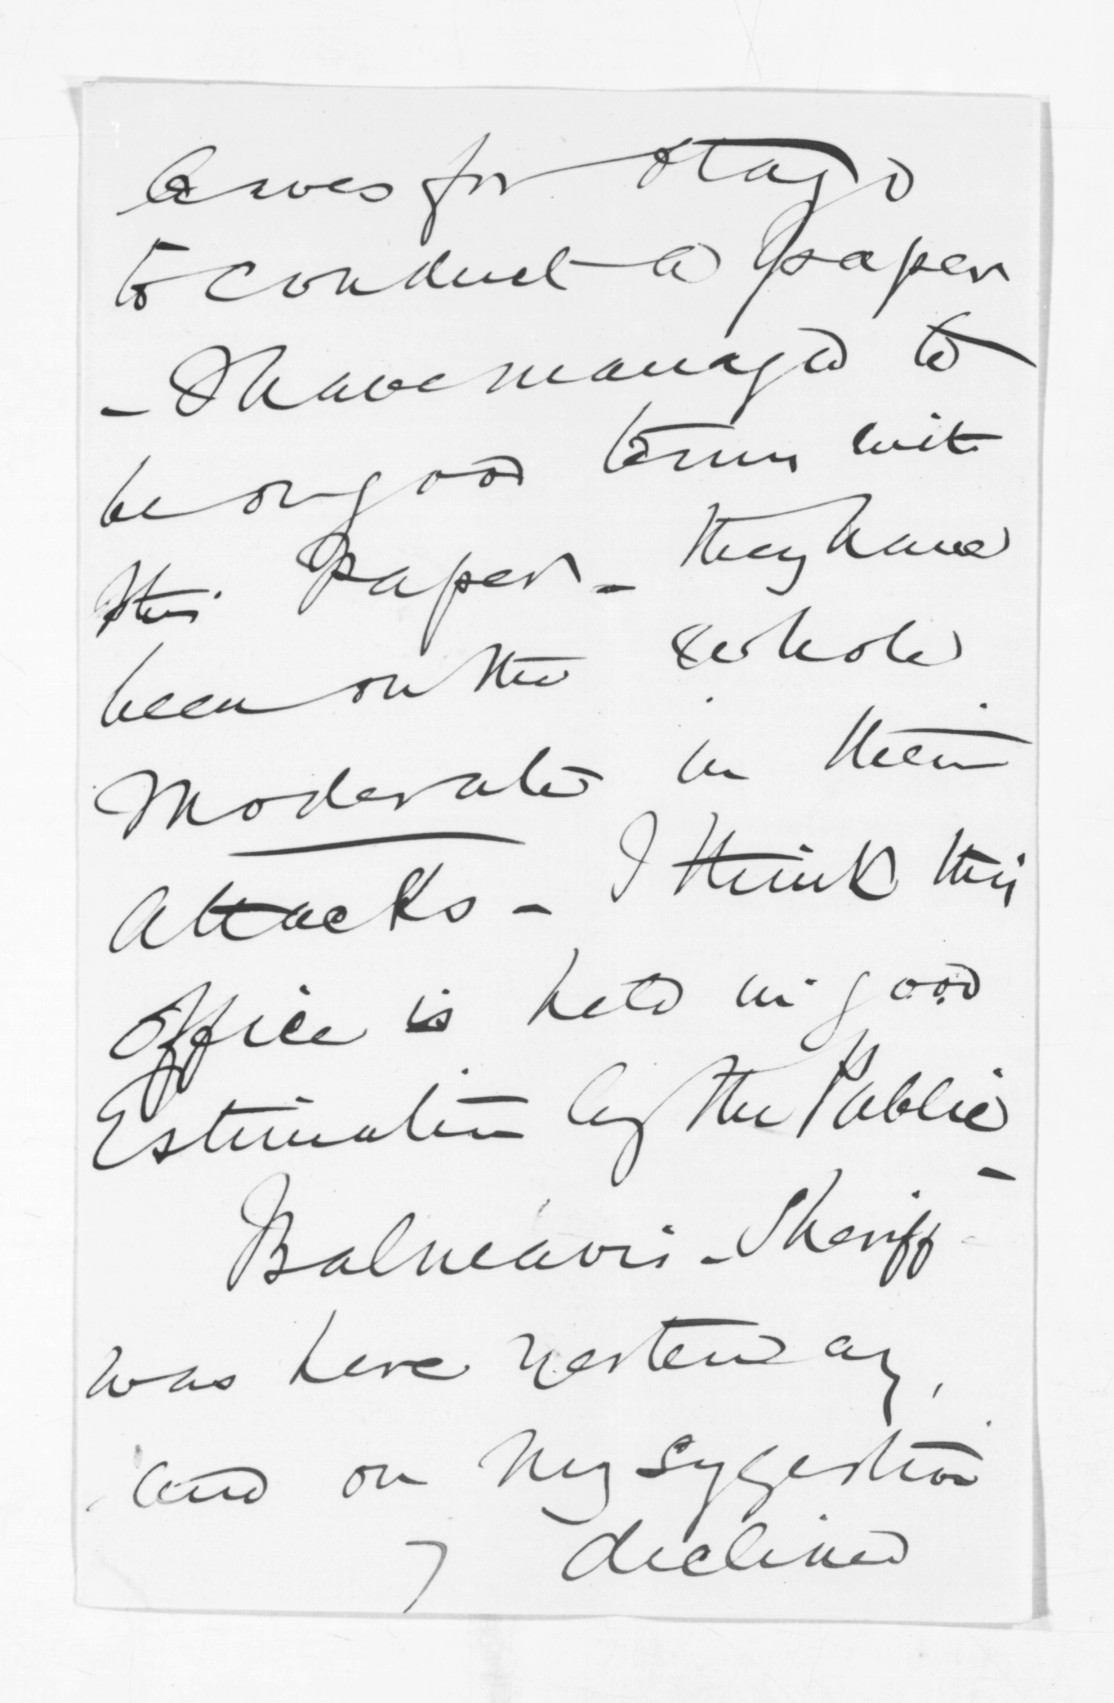 leaves for Otago
to conduct a paper
- I have managed to
be on good terms with
this Paper - they have
been on the whole
Moderate in their
Attacks - I think this
Office is held in good
Estimation by the Public -
Balneavis - Sheriff -
was here yesterday,
and on my suggestion
declined